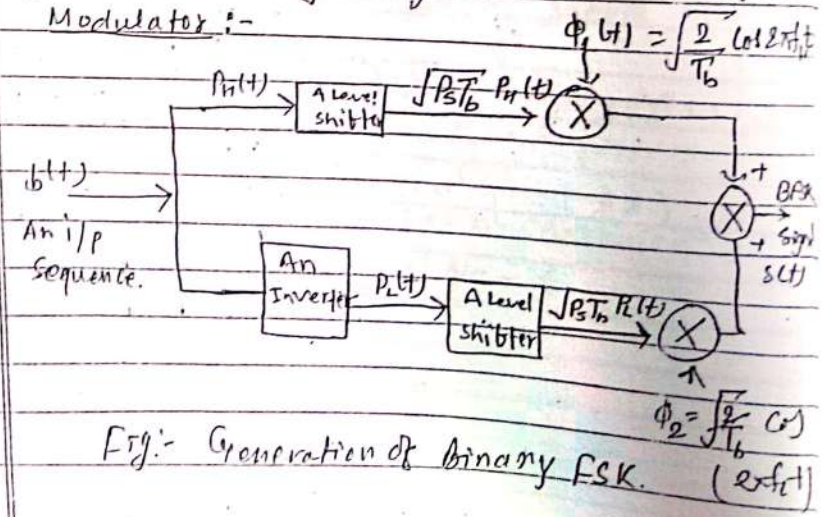 Modulator :-
Φ1(t) = √2/Tb Cos2πfHt
PH(t)
A Level Shifter
√PsTb PH(t)
X
b(t)
An i/p Sequence.
+
X
+
BFSK Signl
S(t)
An Inverter
PL(t)
A Level Shifter
√PsTb PL(t)
X
Φ2 = √2/Tb Cos
(2πfLt)
Fig:- Generation of Binary FSK.